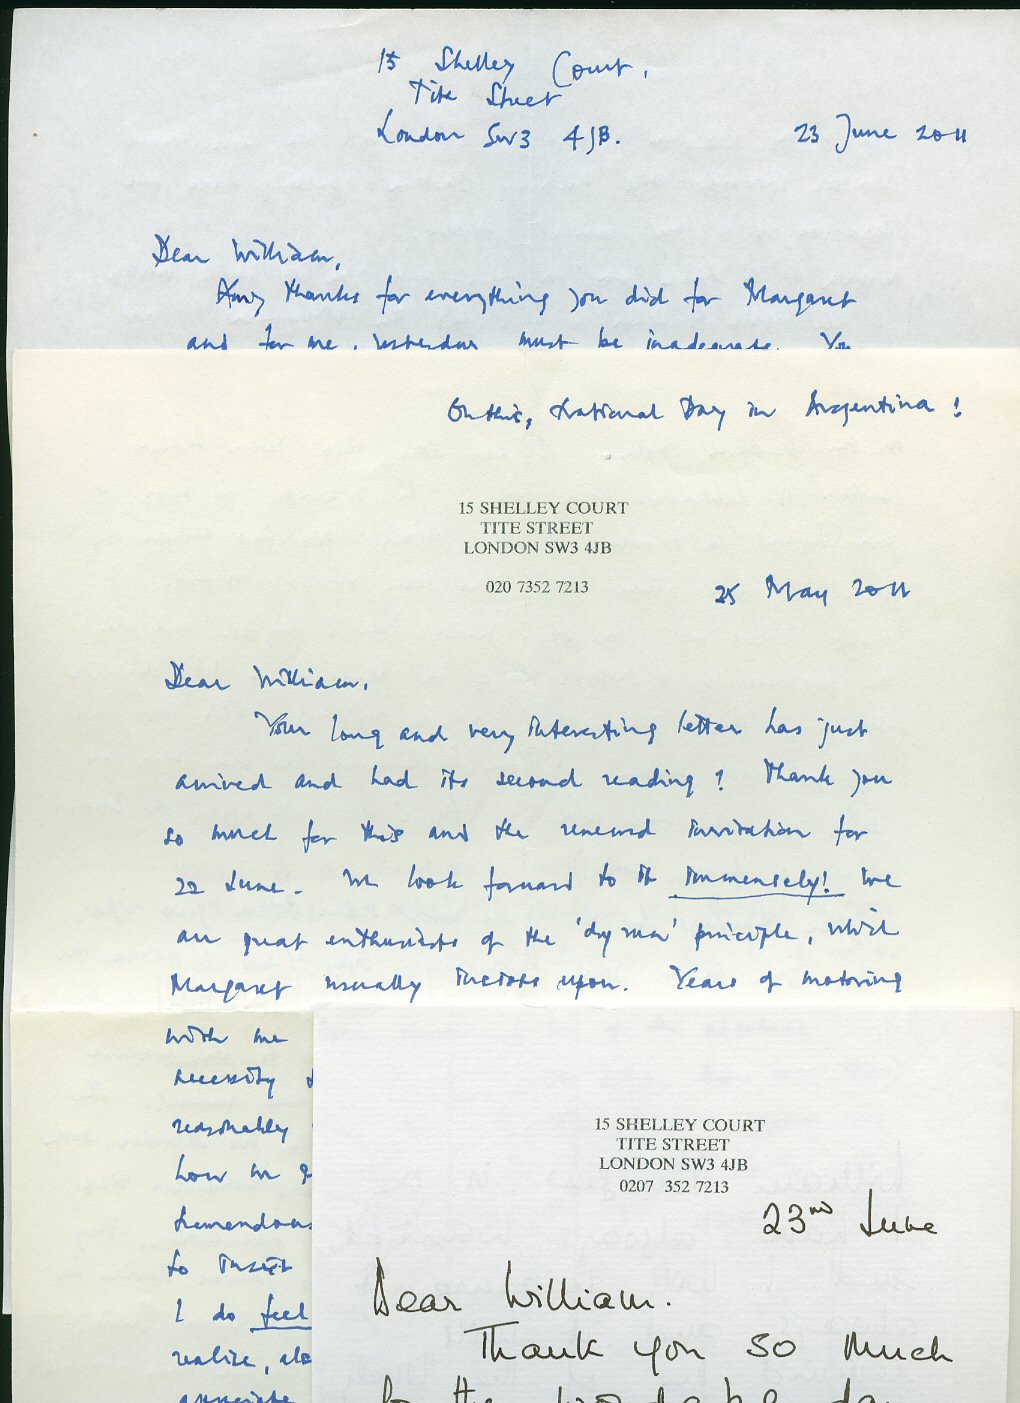 15 Shelley Court,
Tite Street
London SW3 4JB.
23 June 2011
Dear William,
Any thanks for everything you did for Margaret
and for me, yesterday must be inadequate. You
On this, National Day in Argentina!
15 SHELLEY COURT
TITE STREET
LONDON SW3 4JB
020 7352 7213
25 May 2011
Dear William,
Your long and very interesting letter has just
arrived and had its second reading! Thank you
so much for this and the renewed invitation for
22 June. We look forward to it immensely! We
are great enthusiasts of the 'dry run' principle, which
Margaret usually insists upon. Years of motoring
with me
necessity
reasonably
how we
tremendous
to insist
I do feel
realise,
appreciate
15 SHELLEY COURT
TITE STREET
LONDON SW3 4JB
0207 352 7213
23rd June
Dear William.
Thank you so much
for the wonderful day